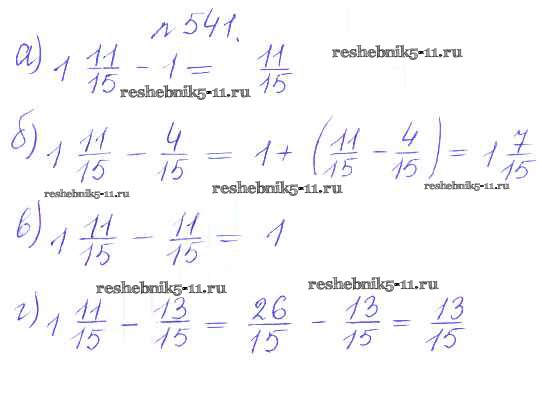 № 541.
а) 1 11/15 - 1 = 11/15
reshebnik5-11.ru
reshebnik5-11.ru
б) 1 11/15 - 4/15 = 1 + (11/15 - 4/15) = 1 7/15
reshebnik5-11.ru reshebnik5-11.ru reshebnik5-11.ru
в) 1 11/15 - 11/15 = 1
reshebnik5-11.ru reshebnik5-11.ru
г) 1 11/15 - 13/15 = 26/15 - 13/15 = 13/15